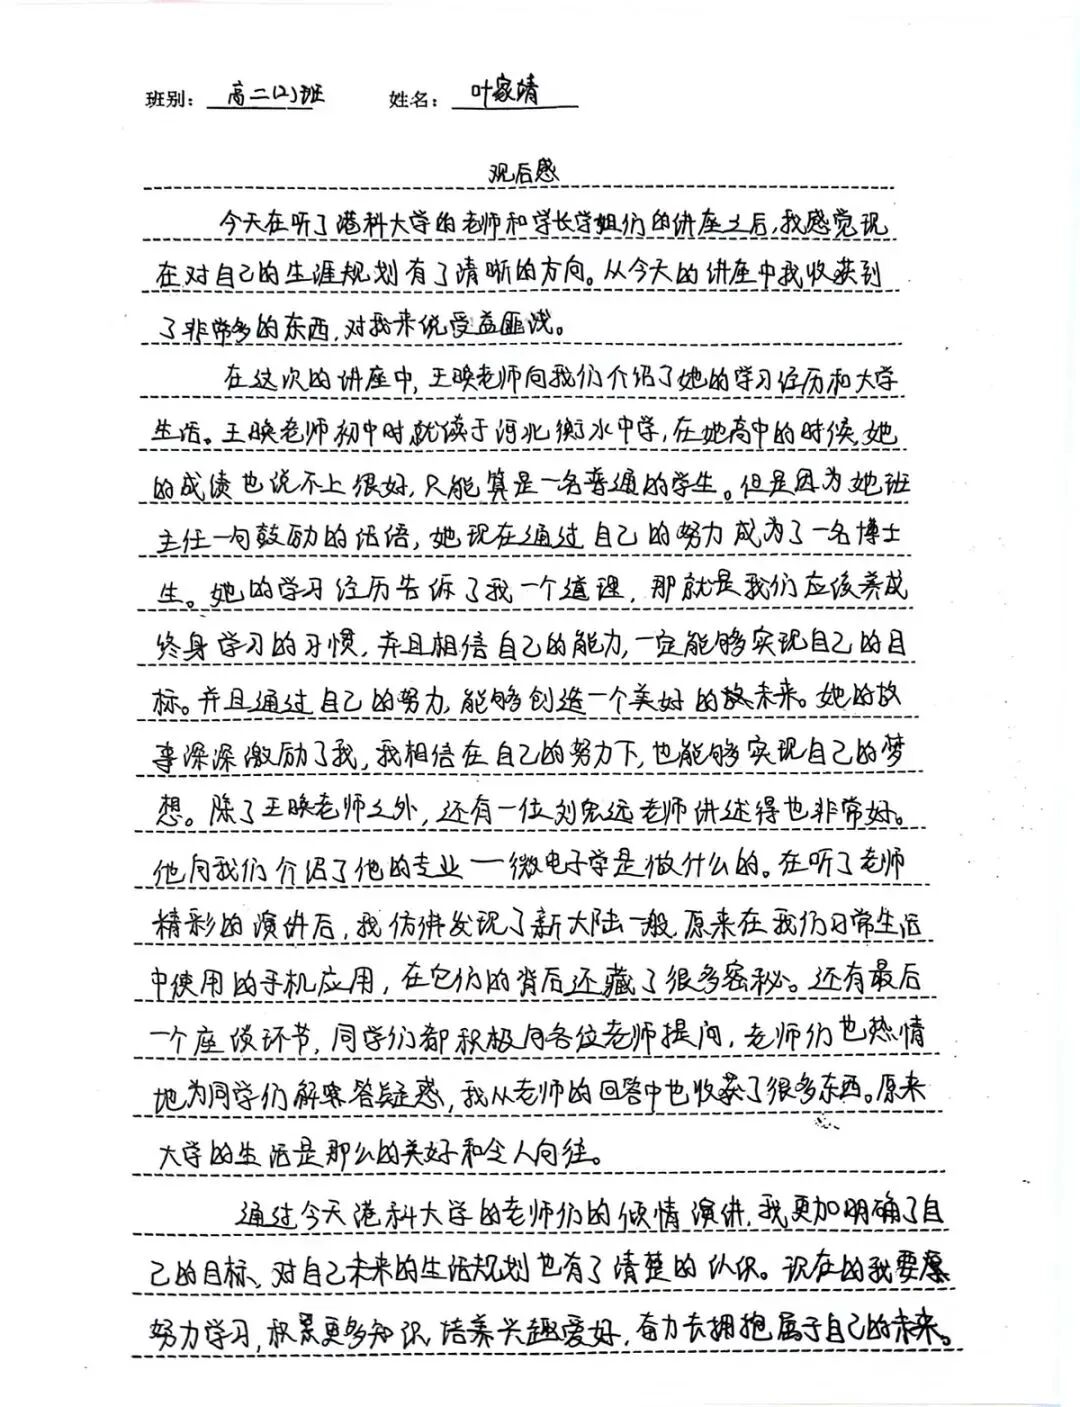 班别：高二(2)班 姓名：叶家靖
观后感
今天在听了港科大学的老师和学长学姐们的讲座之后,我感觉现
在对自己的生涯规划有了清晰的方向。从今天的讲座中我收获到
了非常多的东西,对我来说受益匪浅。
在这次的讲座中,王晓老师向我们介绍了她的学习经历和大学
生活。王晓老师初中时就读于河北衡水中学,在她高中的时候,她
的成绩也说不上很好,只能算是一名普通的学生。但是因为她班
主任一句鼓励的话语,她现在通过自己的努力成为了一名博士
生。她的学习经历告诉了我一个道理,那就是我们应该养成
终身学习的习惯,并且相信自己的能力,一定能够实现自己的目
标。并且通过自己的努力,能够创造一个美好的未来。她的故
事深深激励了我,我相信在自己的努力下,也能够实现自己的梦
想。除了王晓老师之外,还有一位刘宏远老师讲述得也非常好。
他向我们介绍了他的专业一微电子学是做什么的。在听了老师
精彩的演讲后,我仿佛发现了新大陆一般,原来在我们日常生活
中使用的手机应用,在它们的背后还藏了很多密秘。还有最后
一个座谈环节,同学们都积极向各位老师提问,老师们也热情
地为同学们解答疑惑,我从老师的回答中也收获了很多东西。原来
大学的生活是那么的美好和令人向往。
通过今天港科大学的老师们的倾情演讲,我更加明确了自
己的目标、对自己未来的生活规划也有了清楚的认识。现在的我要
努力学习,积累更多知识,培养兴趣爱好,奋力去拥抱属于自己的未来。